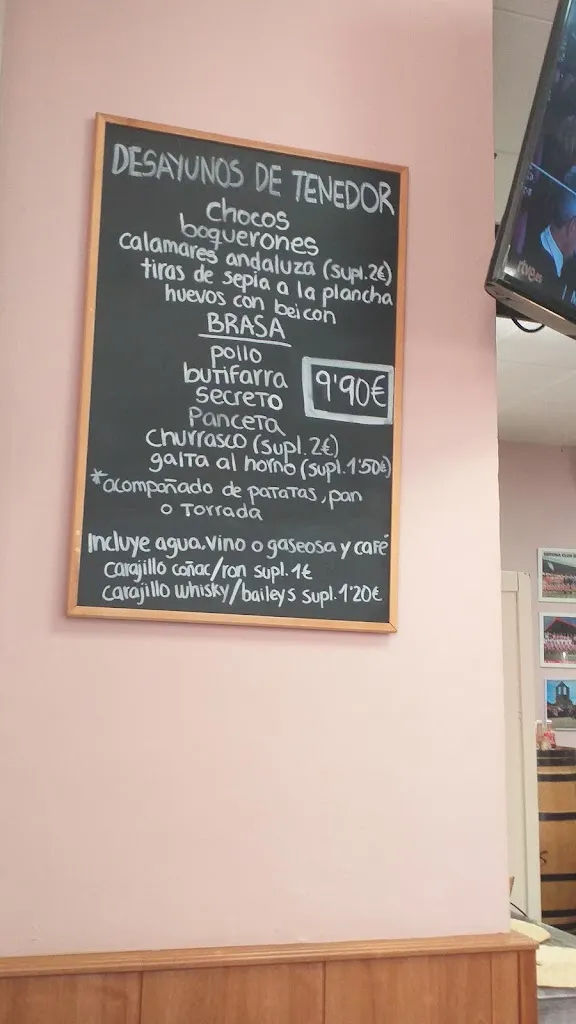 DESAYUNOS DE TENEDOR
chocos
boquerones
calamares andaluza (supl.2€)
tiras de sepia a la plancha
huevos con beicon
BRASA
pollo
butifarra
secreto
9'90€
panceta
churrasco (supl.2€)
galta al horno (supl.1'50€)
*acompañado de patatas, pan
o torrada
Incluye agua, vino o gaseosa y café
carajillo coñac/ron supl.1€
carajillo whisky/baileys supl.1'20€
rtve.es